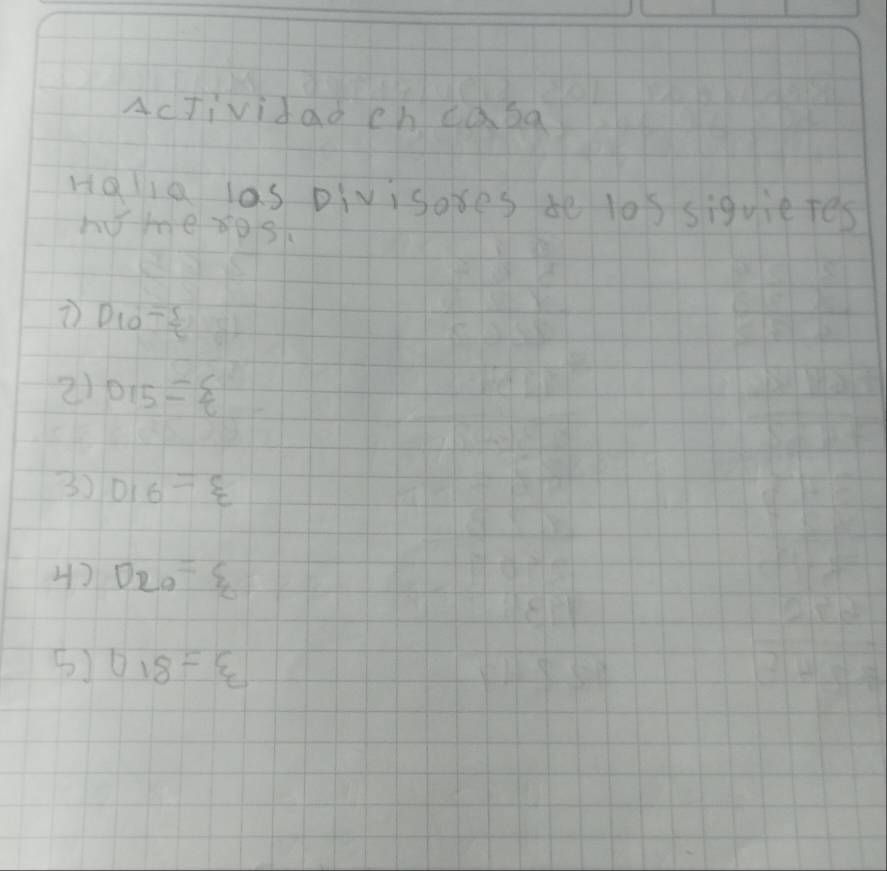 Actividad en casa
Halla los Divisores de los siguietes
números.
1) D10 = {
2) D15 = {
3) D16 = {
4) D20 = {
5) D18 = {